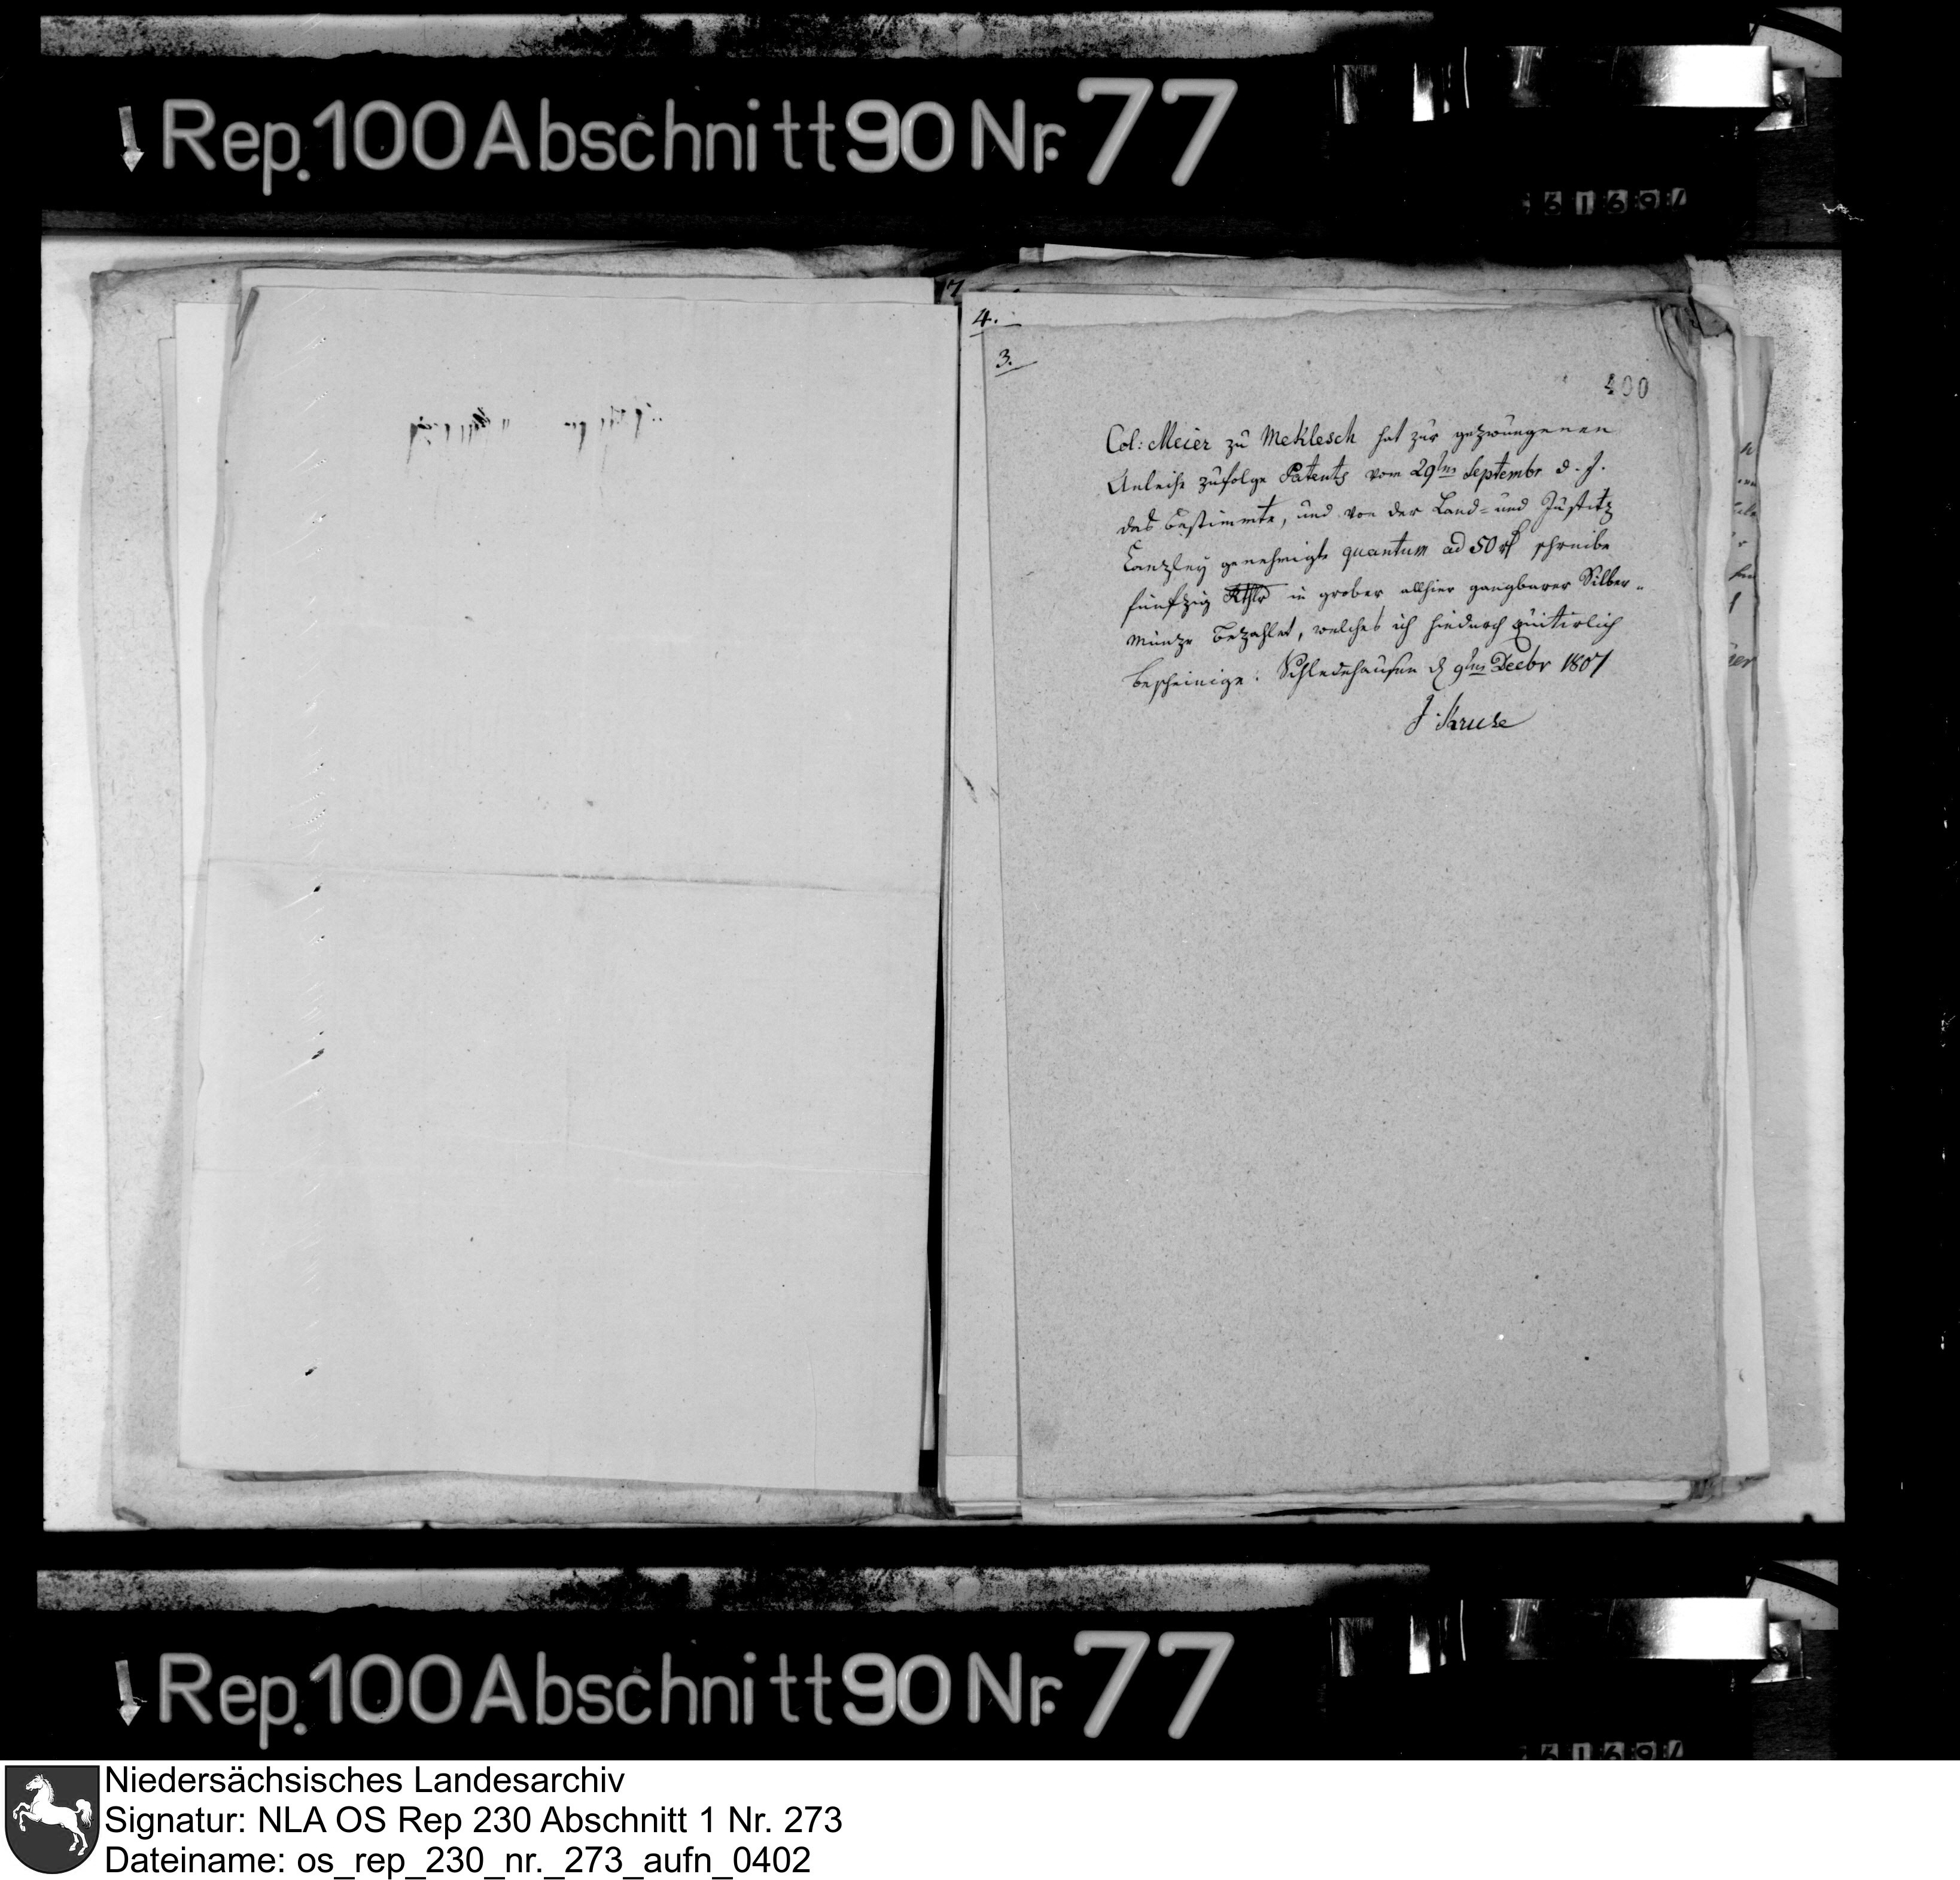 Rep. 100 Abschnitt 90 Nr. 77
4.
3.
400
Col: Meier zu Meklesch hat zur gezwungenen
Anleihe zufolge Patents vom 29ten Septembr d. J.
das bestimmte, und von der Land- und Justitz
Canzley genehmigte quantum ad 50 rt schreibe
funfzig Rthlr in grober allhier gangbarer Silber-
münze bezahlet, welches ich hiedurch quitirlich
bescheinige. Schledehausen d 9ten Decbr 1807
J. Kruse
Rep. 100 Abschnitt 90 Nr. 77
Niedersächsisches Landesarchiv
Signatur: NLA OS Rep 230 Abschnitt 1 Nr. 273
Dateiname: os_rep_230_nr._273_aufn_0402